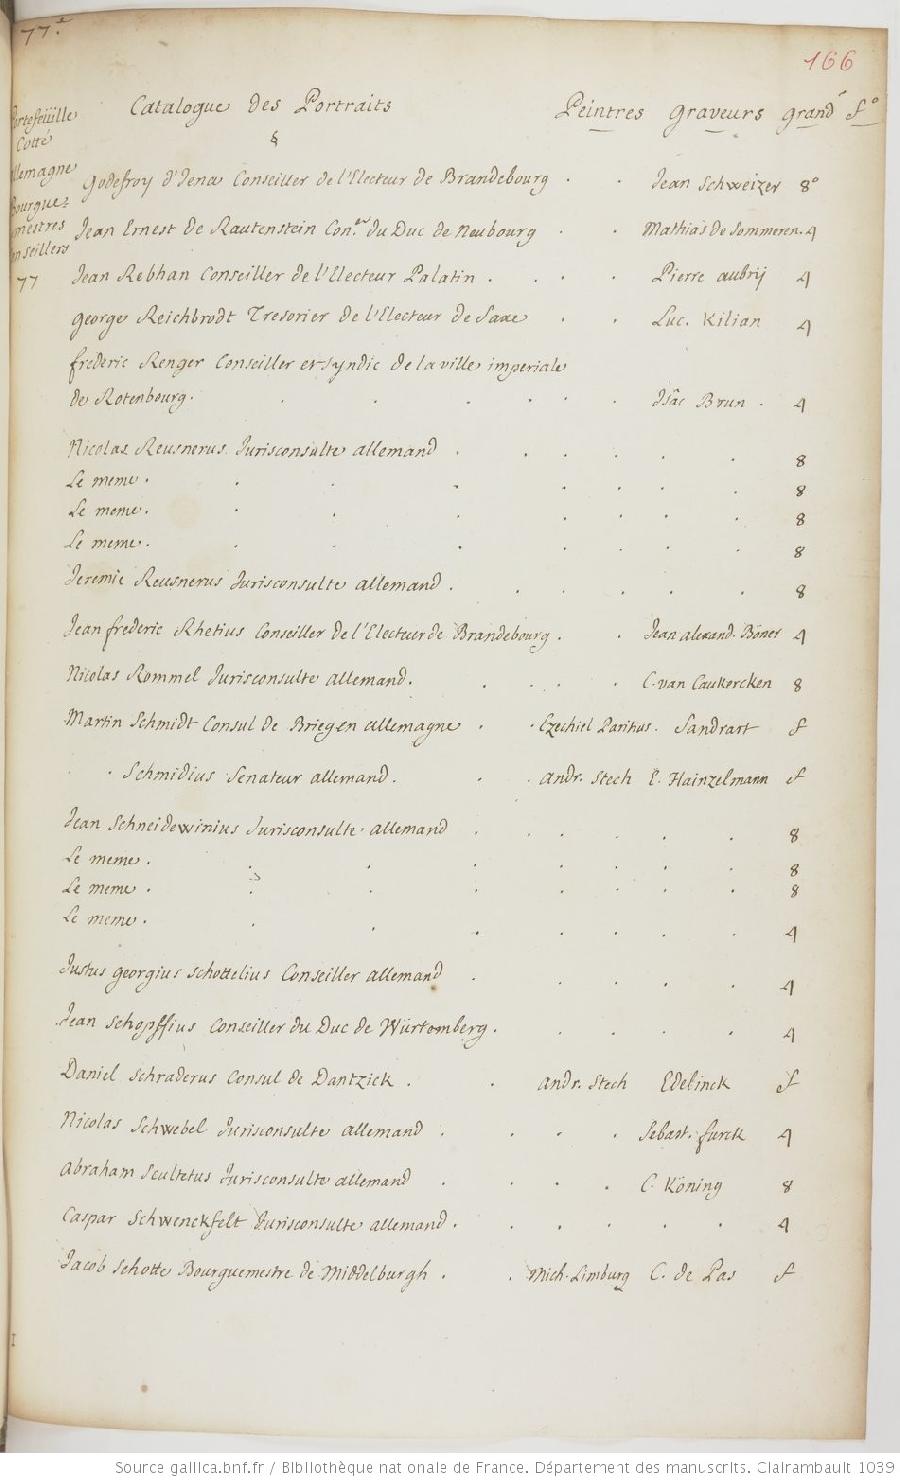 77.e
166
Catalogue des Portraits Peintres Graveurs grand.r f.o
§
Portefeüille
Cotté
Allemagne
Bourgue=
mestres
Conseillers
77
Godefroy d'Jena Conseiller de l'Electeur de Brandebourg . . Jean Schweizer 8°
Jean Ernest de Rautenstein Con.er du Duc de Neubourg . . Mathias de Sommeren. 4
Jean Rebhan Conseiller de l'Electeur Palatin . . . . Pierre aubrij 4
George Reichbrodt Tresorier de l'Electeur de Saxe . . Luc. Kilian 4
frederic Renger Conseiller et syndic de la ville imperiale
de Rotenbourg. . . . . . . Isãc Brun . 4
Nicolas Reusnerus Jurisconsulte allemand . . . . . . 8
Le meme. . . . . . . . 8
Le meme. . . . . . . . 8
Le meme. . . . . . . . 8
Jeremie Reusnerus Jurisconsulte allemand . . . . . . 8
Jean frederic Rhetius Conseiller de l'Electeur de Brandebourg . . Jean alexand. Böner 4
Nicolas Rommel Jurisconsulte allemand. . . . . C. van Caukercken 8
Martin Schmidt Consul de Brieg en allemagne . . Ezechiel Paritius. Sandrart f
. Schmidius Senateur allemand. . . andr. Stech E. Hainzelmann f
Jean Schneidewinius Jurisconsulte allemand . . . . . 8
Le meme. . . . . . . . 8
Le meme . . . . . . . . 8
Le meme. . . . . . . 4
Justus georgius Schottelius Conseiller allemand . . . . . 4
Jean Schopffius Conseiller du Duc de Würtemberg. . . . . 4
Daniel Schraderus Consul de Dantzick . . andr. Stech Edelinck f
Nicolas Schwebel Jurisconsulte allemand . . . . Sebast. furck 4
Abraham Scultetus Jurisconsulte allemand . . . . C. Köning 8
Caspar Schwenckfelt Jurisconsulte allemand . . . . . . 4
Jacob Schotte Bourguemestre de Middelburgh . . Mich. Limburg C. de Pas f
Source gallica.bnf.fr / Bibliothèque nationale de France. Département des manuscrits. Clairambault 1039